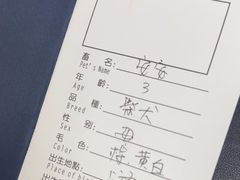 畜名：安安
Pet's Name
年齡：3
Age
品種：柴犬
Breed
性別：
Sex
毛色：黃白
Color
出生地點：
Place of